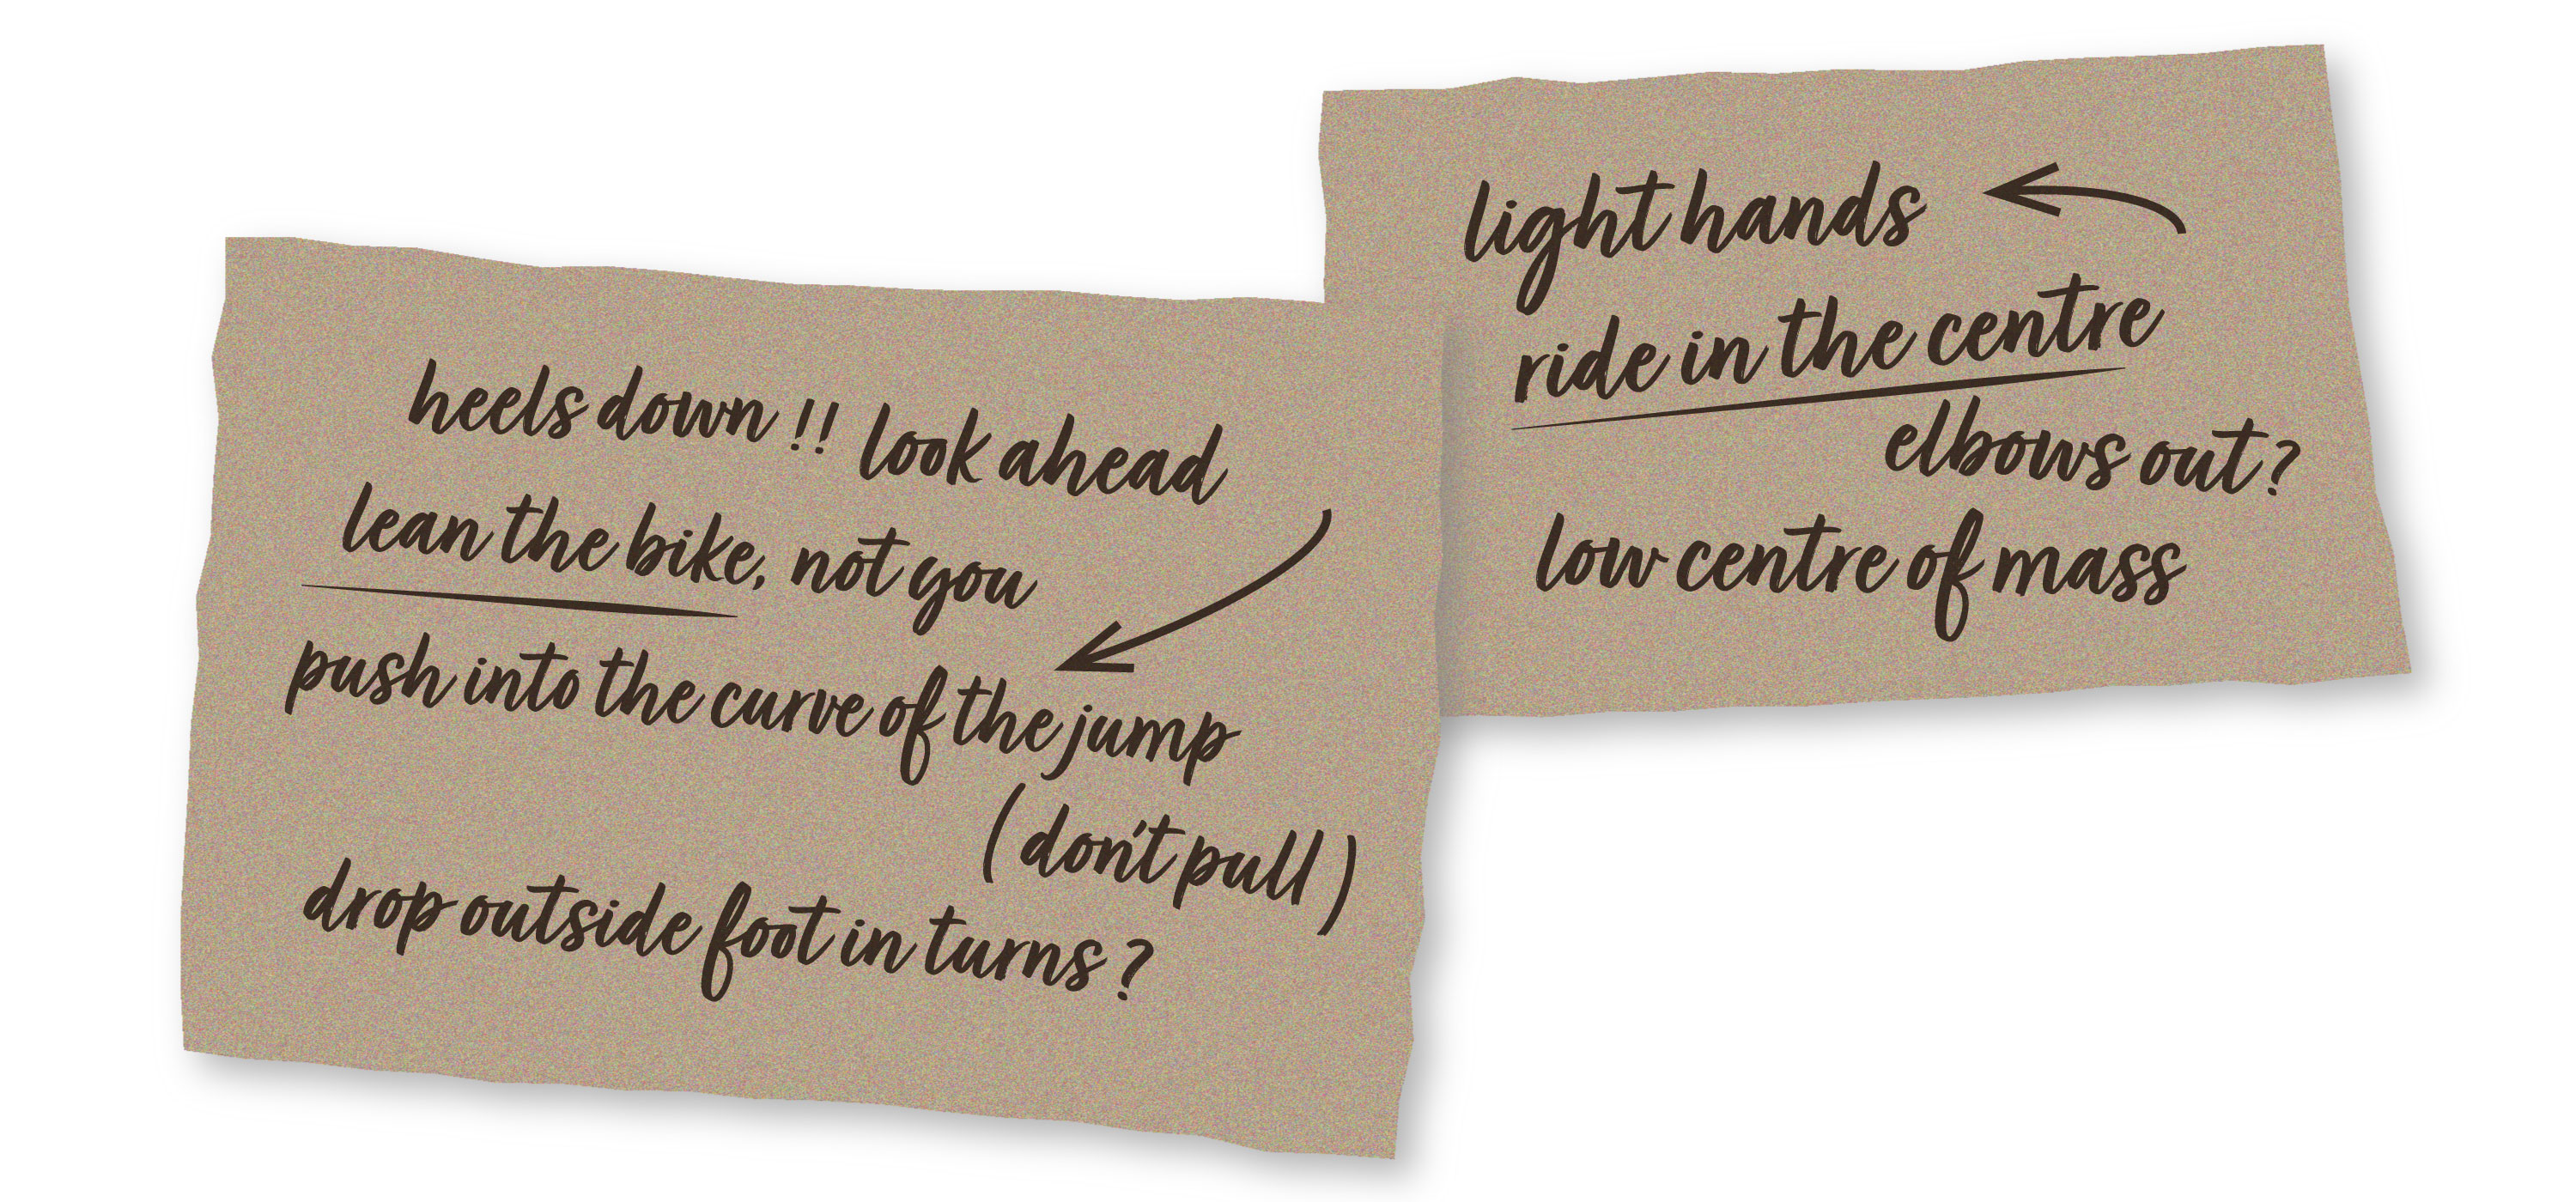 heels down !! look ahead
lean the bike, not you
push into the curve of the jump
(don't pull)
drop outside foot in turns ?
light hands
ride in the centre
elbows out?
low centre of mass